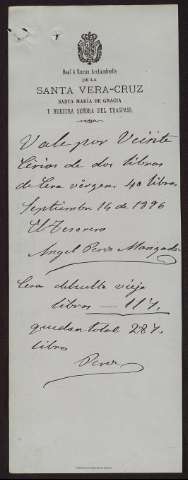 Real é Ilustre Archicofradía
DE LA
SANTA VERA-CRUZ
SANTA MARÍA DE GRACIA
Y NUESTRA SEÑORA DEL TRASPASO.
Vale por Veinte
Cirios de dos libras
de Cera virgen 40 libras
Septiembre 14 de 1896
El Tesorero
Angel Perez
Cera devuelta vieja
libras — 11 ½
quedan total 28 ½
libras
Perez